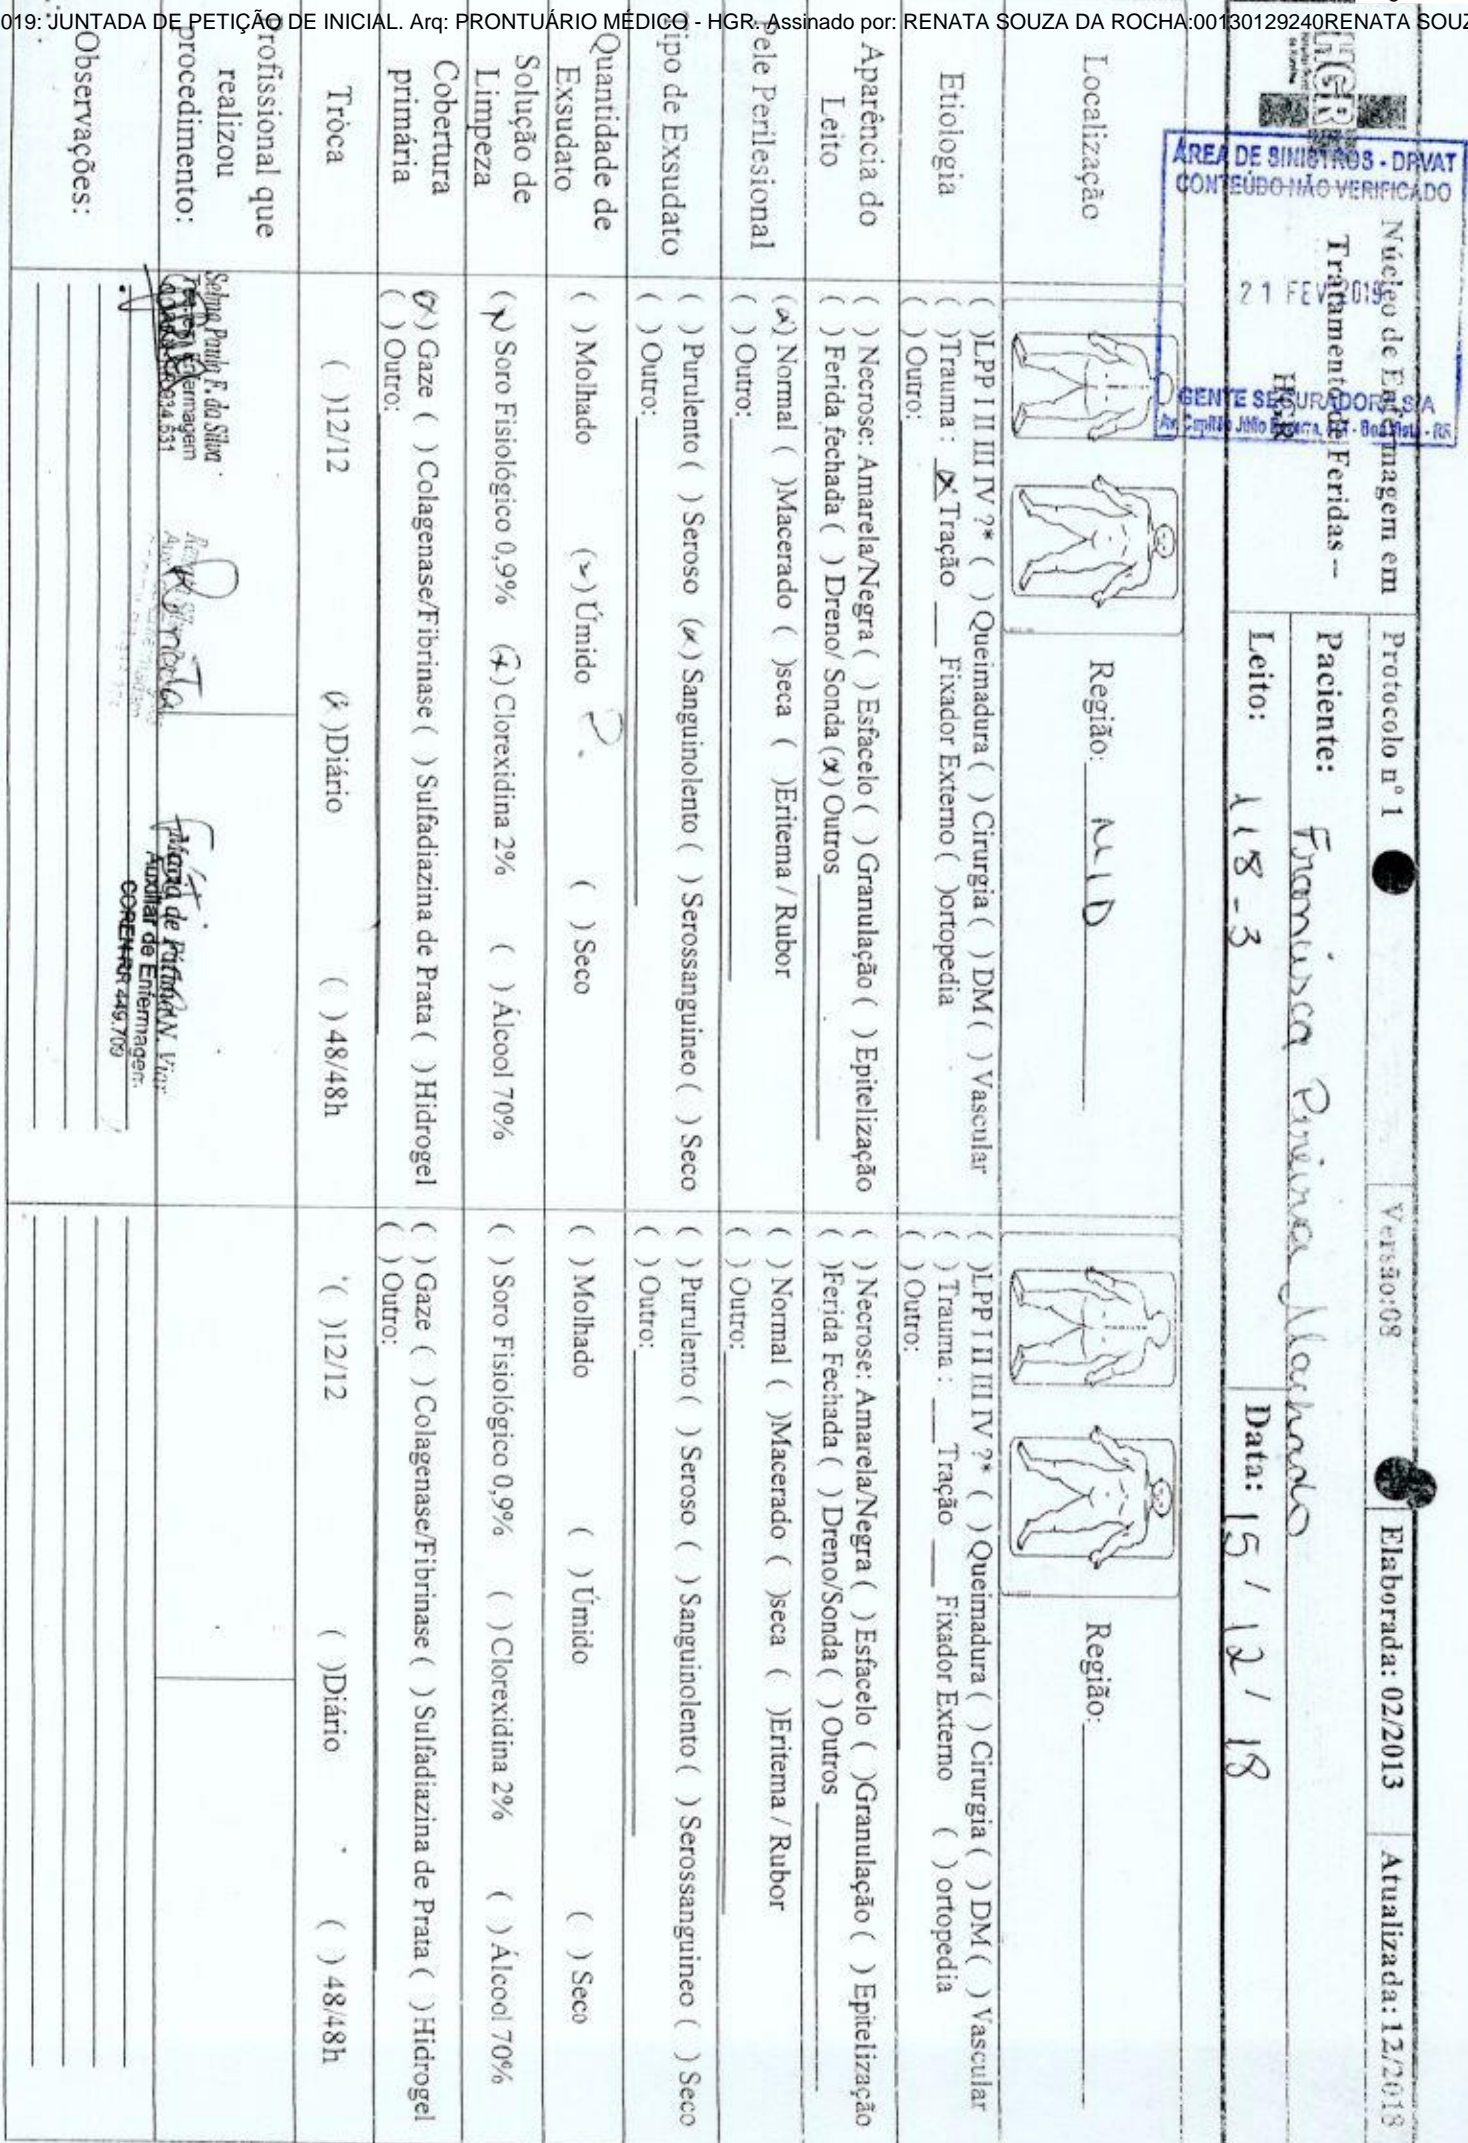 019: JUNTADA DE PETIÇÃO DE INICIAL. Arq: PRONTUÁRIO MÉDICO - HGR. Assinado por: RENATA SOUZA DA ROCHA:00130129240RENATA SOUZ
HGR
Núcleo de Enfermagem em
Tratamento de Feridas –
HGR
Protocolo nº 1
Versão:08
Elaborada: 02/2013
Atualizada: 12/2018
Paciente: Francisca Pereira Machado
Leito: 118-3
Data: 15 / 12 / 18
ÁREA DE SINISTROS - DPVAT
CONTEÚDO NÃO VERIFICADO
21 FEV 2019
GENTE SEGURADORA S/A
Localização
Região: MID
Região:
Etiologia
( )LPP I II III IV ?* ( ) Queimadura ( ) Cirurgia ( ) DM ( ) Vascular
( )Trauma : X Tração ___ Fixador Externo ( )ortopedia
( ) Outro:
( )LPP I II III IV ?* ( ) Queimadura ( ) Cirurgia ( ) DM ( ) Vascular
( ) Trauma : ___ Tração ___ Fixador Externo ( ) ortopedia
( ) Outro:
Aparência do
Leito
( ) Necrose: Amarela/Negra ( ) Esfacelo ( ) Granulação ( ) Epitelização
( ) Ferida fechada ( ) Dreno/ Sonda (x) Outros
( ) Necrose: Amarela/Negra ( ) Esfacelo ( )Granulação ( ) Epitelização
( )Ferida Fechada ( ) Dreno/Sonda ( ) Outros
Pele Perilesional
(x) Normal ( )Macerado ( )seca ( )Eritema / Rubor
( ) Outro:
( ) Normal ( )Macerado ( )seca ( )Eritema / Rubor
( ) Outro:
Tipo de Exsudato
( ) Purulento ( ) Seroso (x) Sanguinolento ( ) Serossanguineo ( ) Seco
( ) Outro:
( ) Purulento ( ) Seroso ( ) Sanguinolento ( ) Serossanguineo ( ) Seco
( ) Outro:
Quantidade de
Exsudato
( ) Molhado (x) Úmido P. ( ) Seco
( ) Molhado ( ) Úmido ( ) Seco
Solução de
Limpeza
(x) Soro Fisiológico 0,9% (x) Clorexidina 2% ( ) Álcool 70%
( ) Soro Fisiológico 0,9% ( ) Clorexidina 2% ( ) Álcool 70%
Cobertura
primária
(x) Gaze ( ) Colagenase/Fibrinase ( ) Sulfadiazina de Prata ( ) Hidrogel
( ) Outro:
( ) Gaze ( ) Colagenase/Fibrinase ( ) Sulfadiazina de Prata ( ) Hidrogel
( ) Outro:
Troca
( )12/12 (x)Diário ( ) 48/48h
( )12/12 ( )Diário ( ) 48/48h
Profissional que
realizou
procedimento:
Selma Paula F. da Silva
Enfermagem
914.531
Maria de Fátima N.
Auxiliar de Enfermagem
COREN-RR 449.709
Observações: